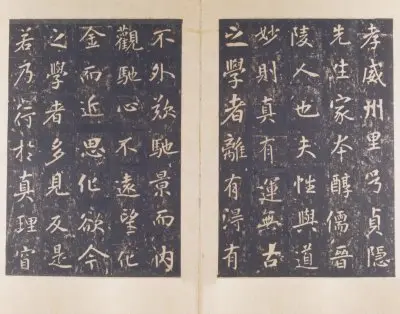 孝威州里号貞隱
先生家本醇儒晉
陵人也夫性與道
妙則真有運無古
之學者離有淂有
不外歎馳景而内
觀馳心不遠望化
金而近思化欲今
之學者多見反是
若乃行於真理窅